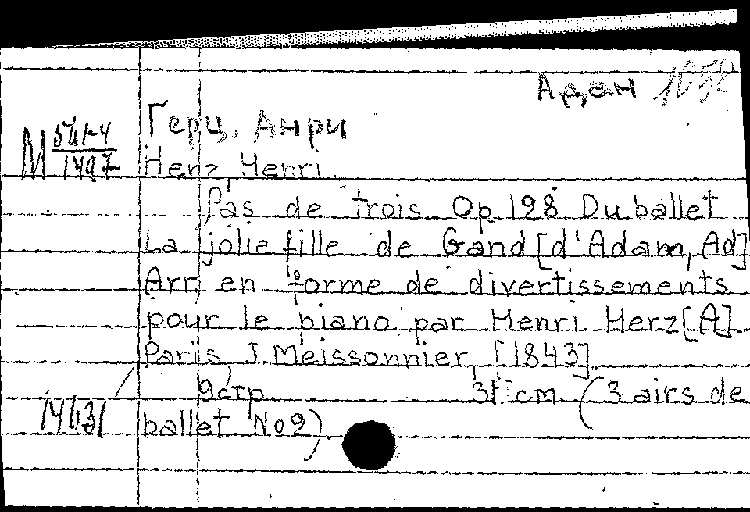 Адан
Герц, Анри
Herz, Henri.
Pas de trois. Op. 128 Du ballet
La jolie fille de Gand [d'Adam, Ad]
Arr. en forme de divertissements
pour le piano par Henri Herz [A]
Paris J. Meissonnier, [1843]
9 стр. см (3 airs de
ballet No 2)